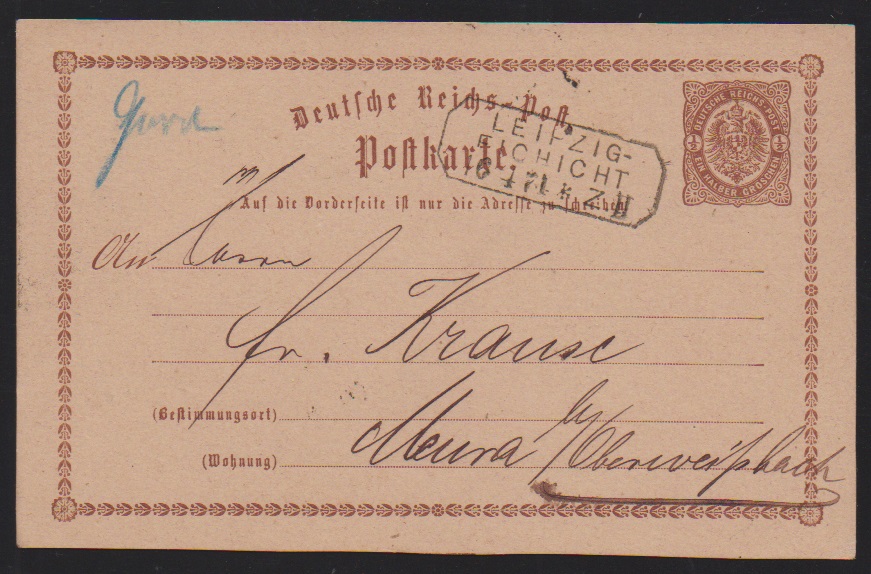 Deutsche Reichs-Post
Postkarte.
DEUTSCHE REICHS-POST
½ ½
EIN HALBER GROSCHEN
LEIPZIG-
EICHICHT
16 4 7 Z II
Auf die Vorderseite ist nur die Adresse zu schreiben
An Herrn
Fr. Krause
(Bestimmungsort)
Meura b/ Oberweißbach
(Wohnung)